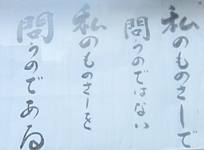 私のものさしで
問うのではない
私のものさしを
問うのである